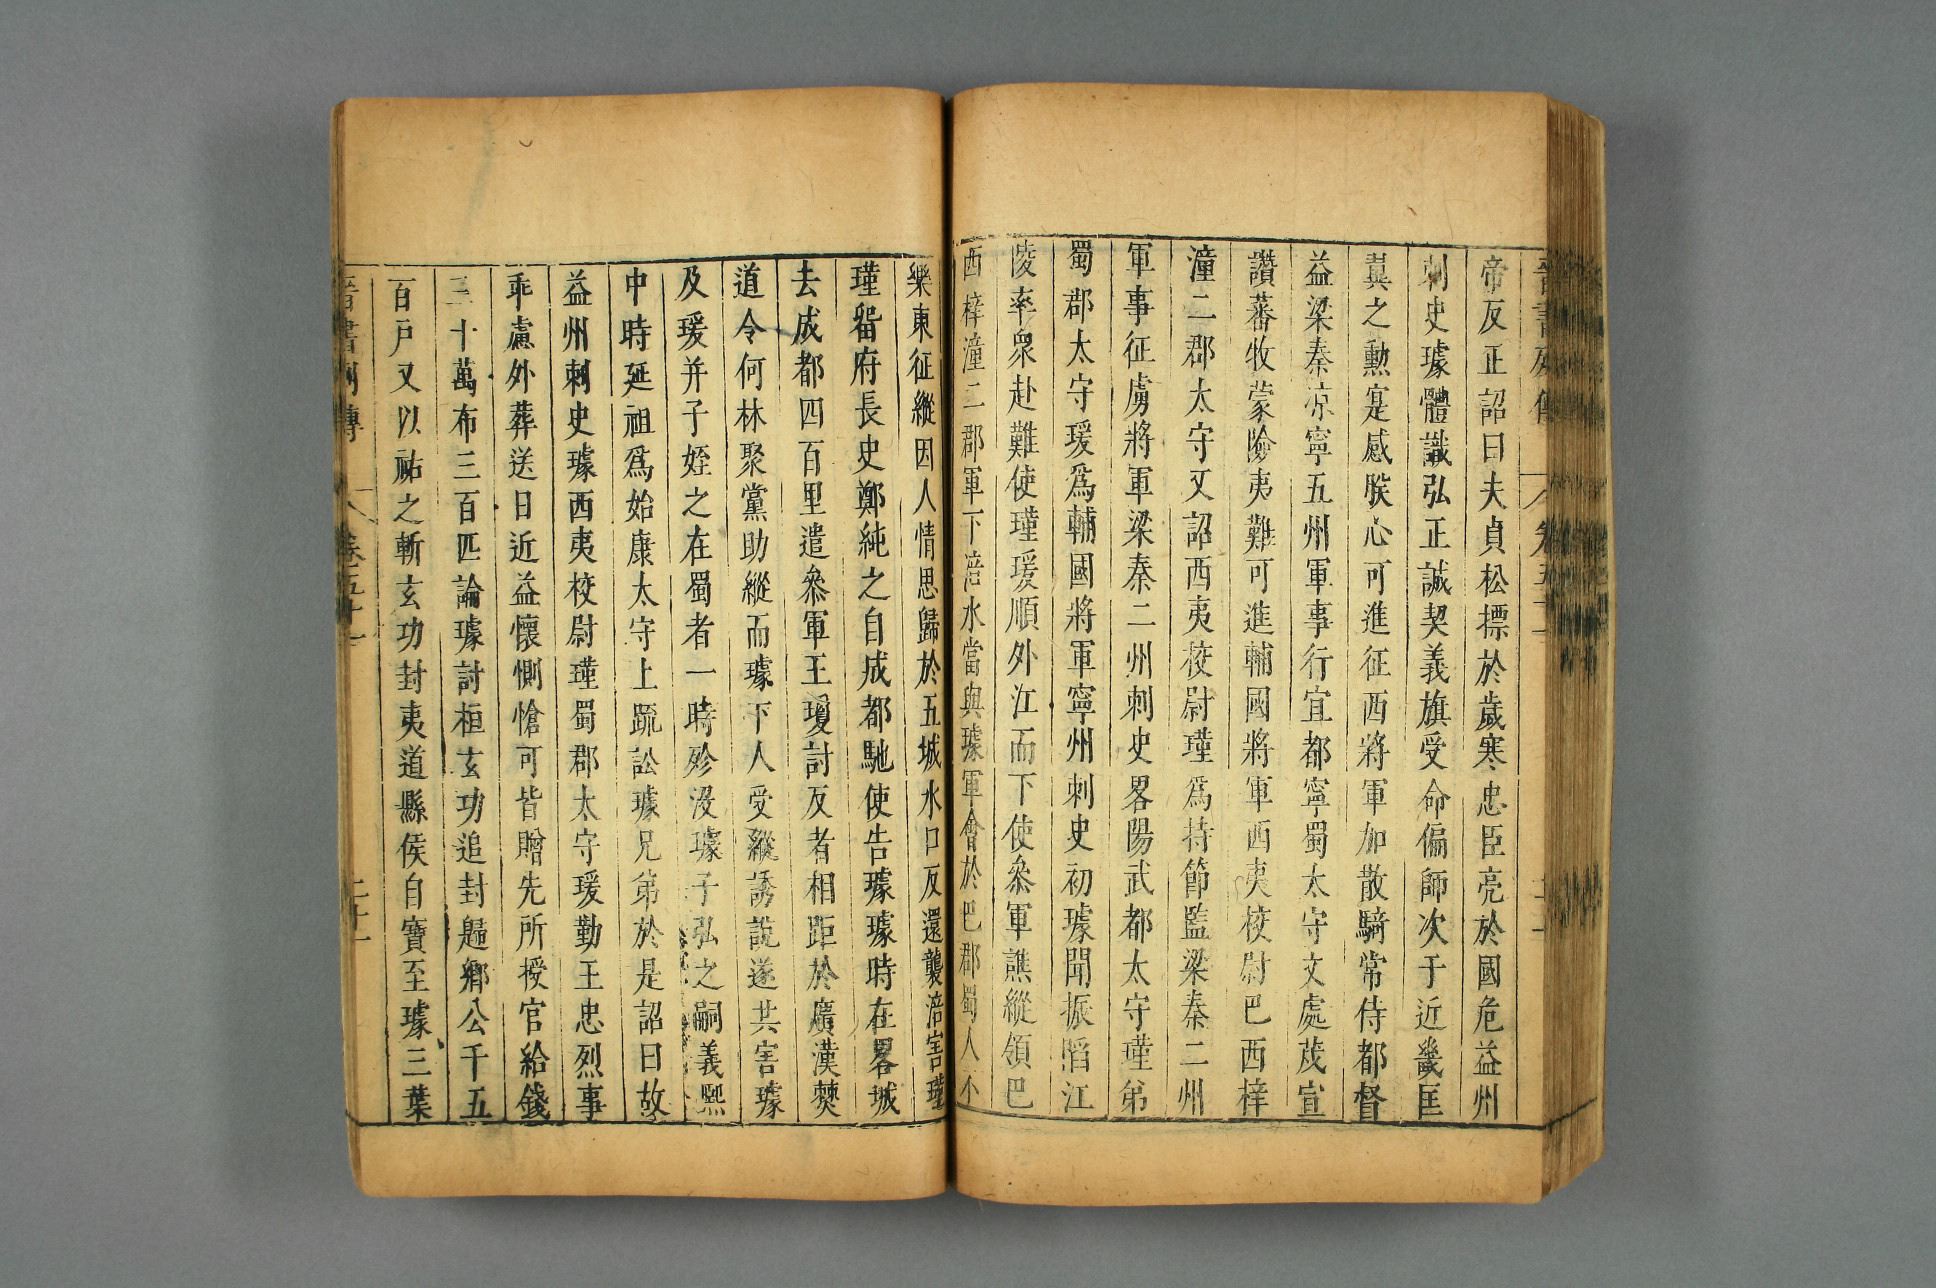 帝反正詔曰夫貞松標於歲寒忠臣亮於國危益州
刺史璩體識弘正誠契義旗受命偏師次于近畿匡
翼之勳寔感朕心可進征西將軍加散騎常侍都督
益梁秦涼寧五州軍事行宜都寧蜀太守文處茂宣
讚蕃牧蒙險夷難可進輔國將軍西夷校尉巴西梓
潼二郡太守又詔西夷校尉瑾爲持節監梁秦二州
軍事征虜將軍梁秦二州刺史畧陽武都太守瑾弟
蜀郡太守瑗爲輔國將軍寧州刺史初璩聞振䧟江
陵率衆赴難使瑾瑗順外江而下使叅軍譙縱領巴
西梓潼二郡軍下涪水當與璩軍會於巴郡蜀人不
樂東征縱因人情思歸於五城水口反還襲涪害瑾
瑾留府長史鄭純之自成都馳使告璩璩時在畧城
去成都四百里遣叅軍王瓊討反者相距於廣漢僰
道令何林聚黨助縱而璩下人受縱誘說遂共害璩
及瑗并子姪之在蜀者一時殄没璩子弘之嗣義熙
中時延祖爲始康太守上疏訟璩兄弟於是詔曰故
益州刺史璩西夷校尉瑾蜀郡太守瑗勤王忠烈事
乖慮外葬送日近益懷惻愴可皆贈先所授官給錢
三十萬布三百匹論璩討桓玄功追封歸鄉公千五
百戸又以祐之斬玄功封夷道縣侯自寶至璩三葉
晋書列傳 卷五十一 二十一